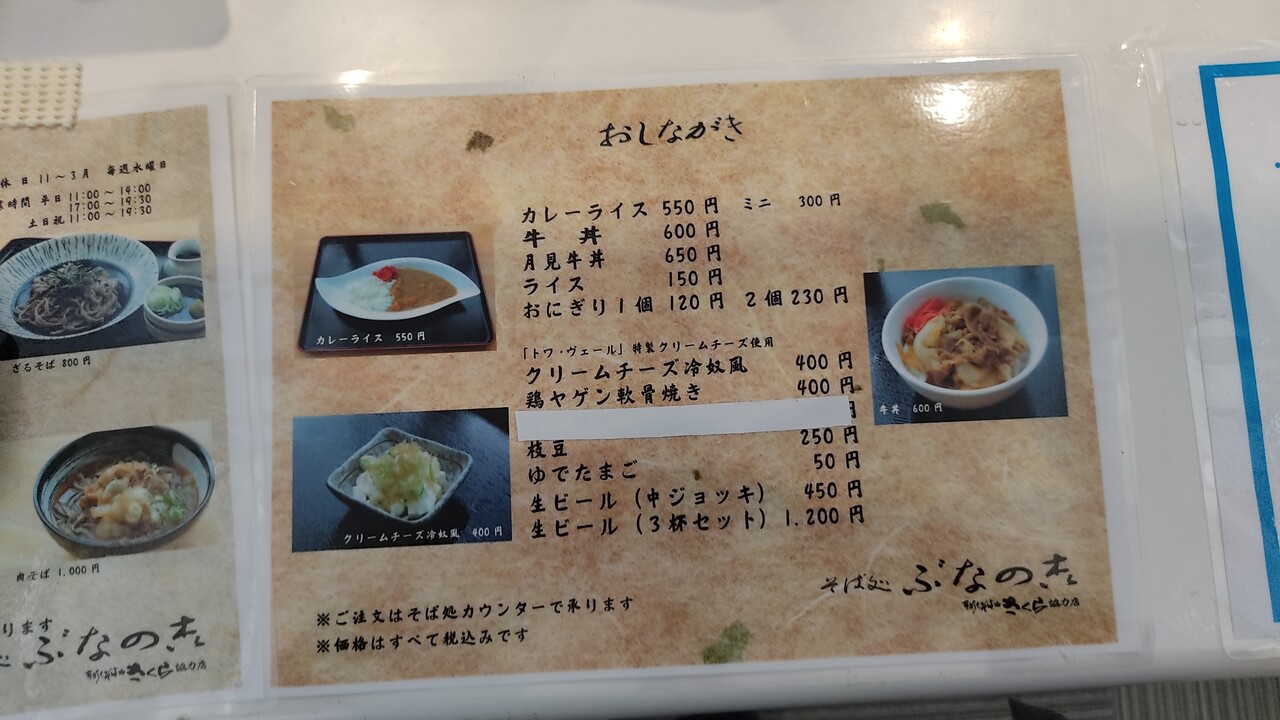 休日 11～3月 毎週水曜日
時間 平日 11:00～14:00
17:00～19:30
土日祝 11:00～19:30
ざるそば 800円
肉そば 1,000円
ります
ぶなの杜
きくら 協力店
おしながき
カレーライス 550円 ミニ 300円
牛丼 600円
月見牛丼 650円
ライス 150円
おにぎり1個 120円 2個230円
「トワ・ヴェール」特製クリームチーズ使用
クリームチーズ冷奴風 400円
鶏ヤゲン軟骨焼き 400円
枝豆 250円
ゆでたまご 50円
生ビール（中ジョッキ） 450円
生ビール（3杯セット） 1.200円
カレーライス 550円
クリームチーズ冷奴風 400円
牛丼 600円
※ご注文はそば処カウンターで承ります
※価格はすべて税込みです
そば処 ぶなの杜
きくら 協力店